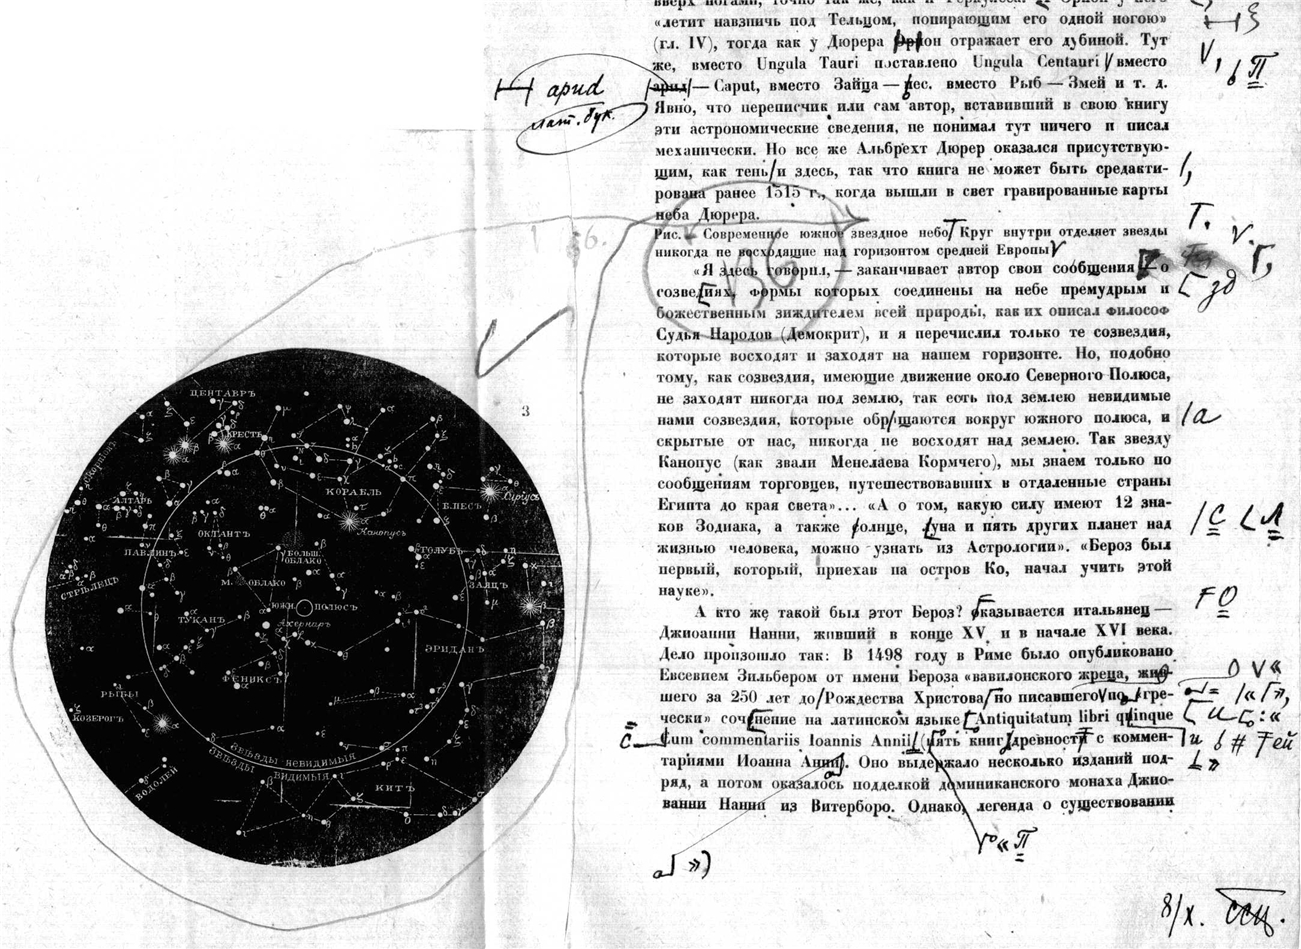 вверх ногами, точно так же, как и
«летит навзничь под Тельцом, попирающим его одной ногою»
(гл. IV), тогда как у Дюрера Орион отражает его дубиной. Тут
же, вместо Ungula Tauri поставлено Ungula Centauri вместо
арид — Caput, вместо Зайца — пес. вместо Рыб — Змей и т. д.
Явно, что переписчик или сам автор, вставивший в свою книгу
эти астрономические сведения, не понимал тут ничего и писал
механически. Но все же Альбрехт Дюрер оказался присутствую-
щим, как тень и здесь, так что книга не может быть средакти-
рована ранее 1515 г., когда вышли в свет гравированные карты
неба Дюрера.
Рис. — Современное южное звездное небо Круг внутри отделяет звезды
никогда не восходящие над горизонтом средней Европы
«Я здесь говорил, — заканчивает автор свои сообщения — о
созведиях, формы которых соединены на небе премудрым и
божественным зиждителем всей природы, как их описал философ
Судья Народов (Демокрит), и я перечислил только те созвездия,
которые восходят и заходят на нашем горизонте. Но, подобно
тому, как созвездия, имеющие движение около Северного Полюса,
не заходят никогда под землю, так есть под землею невидимые
нами созвездия, которые обращаются вокруг южного полюса, и
скрытые от нас, никогда не восходят над землею. Так звезду
Канопус (как звали Менелаева Кормчего), мы знаем только по
сообщениям торговцев, путешествовавших в отдаленные страны
Египта до края света»... «А о том, какую силу имеют 12 зна-
ков Зодиака, а также солнце, луна и пять других планет над
жизнью человека, можно узнать из Астрологии». «Бероз был
первый, который, приехав на остров Ко, начал учить этой
науке».
А кто же такой был этот Бероз? оказывается итальянец —
Джиоанни Нанни, живший в конце XV и в начале XVI века.
Дело произошло так: В 1498 году в Риме было опубликовано
Евсевием Зильбером от имени Бероза «вавилонского жреца, жив-
шего за 250 лет до Рождества Христова но писавшего по гре-
чески» сочнение на латинском языке Antiquitatum libri quinque
Cum commentariis Ioannis Annii (пять книг древности с коммен-
тариями Иоанна Аннии). Оно выдержало несколько изданий под-
ряд, а потом оказалось подделкой доминиканского монаха Джио-
ванни Нанни из Витерборо. Однако, легенда о существовании
арид
лат. бук.
136
3
ЦЕНТАВРЪ
КРЕСТЪ
Скорпіонъ
АЛТАРЬ
КОРАБЛЬ
Сиріусъ
Б.ПЕСЪ
Канопусъ
ОКТАНТЪ
ПАВЛИНЪ
БОЛЬШ.
ОБЛАКО
ГОЛУБЬ
СТРѢЛЕЦЪ
М. ОБЛАКО
ЗАЯЦЪ
ЮЖН. ПОЛЮСЪ
ТУКАНЪ
Ахернаръ
ЭРИДАНЪ
ФЕНИКСЪ
РЫБЫ
КОЗЕРОГЪ
ЗВѢЗДЫ НЕВИДИМЫЯ
ЗВѢЗДЫ ВИДИМЫЯ
ВОДОЛЕЙ
КИТЪ
8/X.